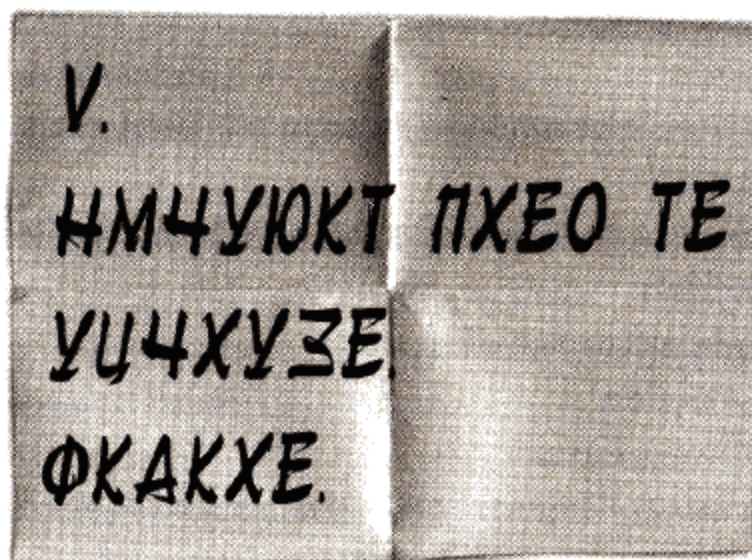 V.
НМЧУЮКТ ПХЕО ТЕ
УЦЧХУЗЕ.
ФКАКХЕ.